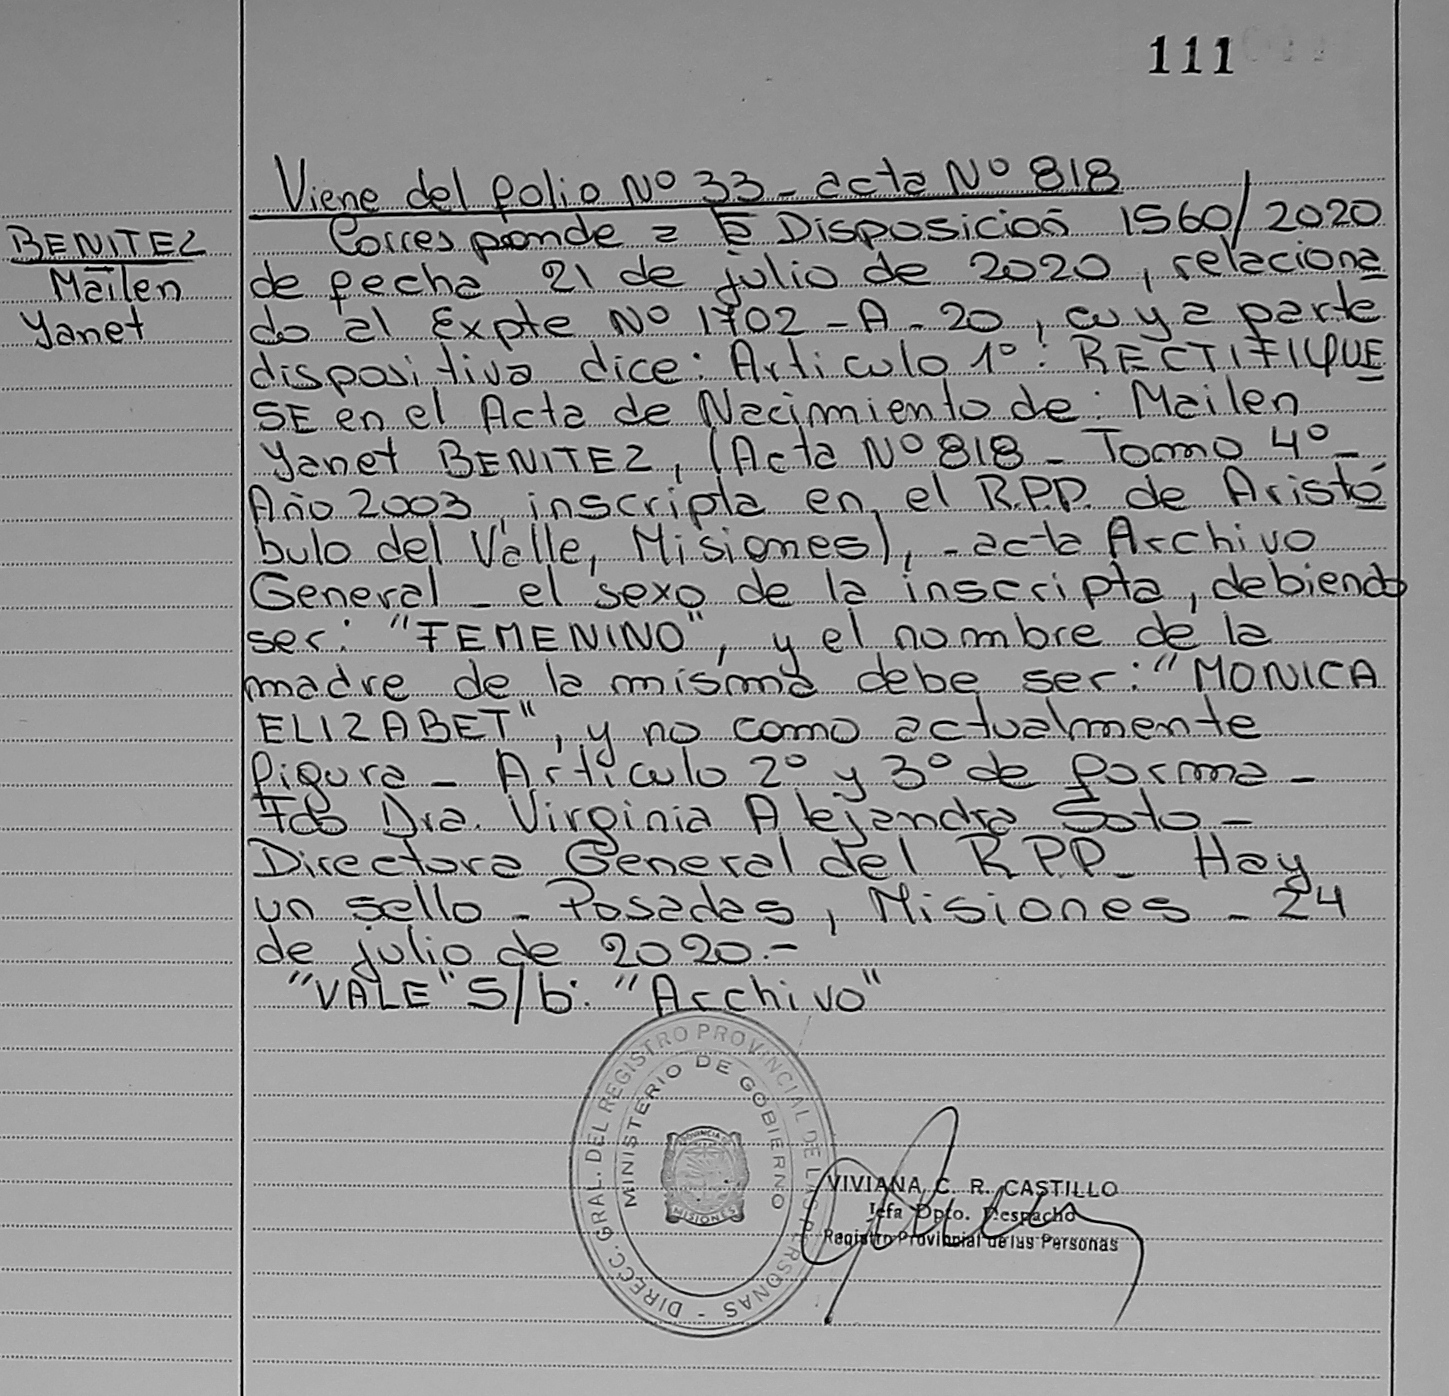 111
Viene del folio Nº 33 - acta Nº 818
BENITEZ
Mailen
Yanet
Corresponde a Disposición 1560/2020
de fecha 21 de julio de 2020, relaciona
do al Expte Nº 1702-A-20, cuya parte
dispositiva dice: Articulo 1º: RECTIFIQUE
SE en el Acta de Nacimiento de: Mailen
Yanet BENITEZ, (Acta Nº 818 - Tomo 4º -
Año 2003, inscripta en el R.P.P. de Aristó
bulo del Valle, Misiones), - acta Archivo
General - el sexo de la inscripta, debiendo
ser: "FEMENINO", y el nombre de la
madre de la misma debe ser: "MONICA
ELIZABET", y no como actualmente
figura - Artículo 2º y 3º de forma -
Fdo Dra. Virginia Alejandra Soto -
Directora General del R.P.P. - Hay
un sello - Posadas, Misiones - 24
de julio de 2020.-
"VALE" S/b: "Archivo"
DIRECC. GRAL. DEL REGISTRO PROVINCIAL DE LAS PERSONAS -
MINISTERIO DE GOBIERNO
PROVINCIA DE
MISIONES
VIVIANA C. R. CASTILLO
Jefa Dpto. Despacho
Registro Provincial de las Personas